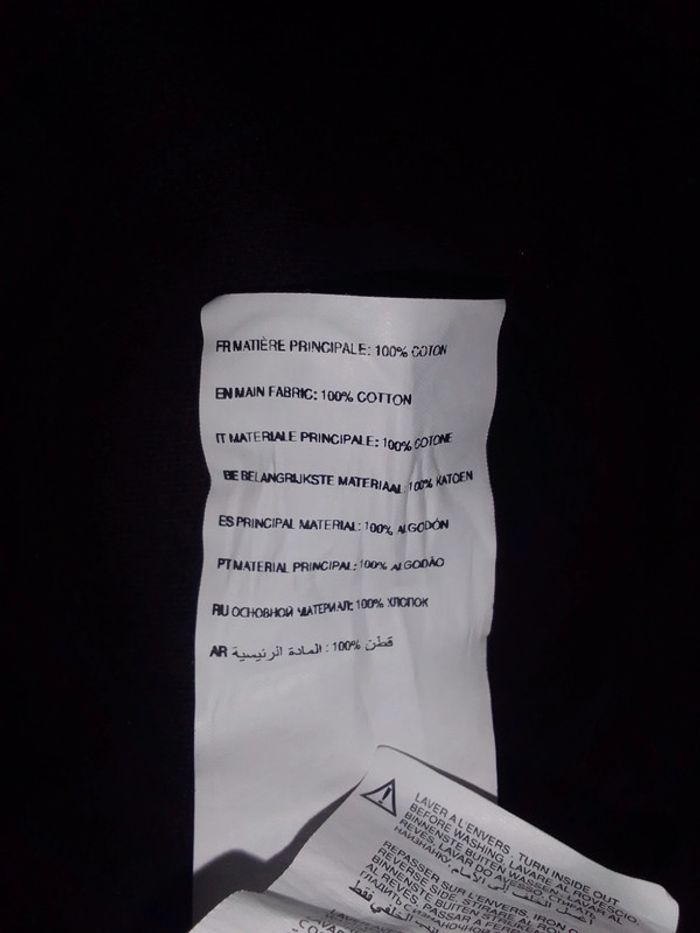 FR MATIÈRE PRINCIPALE: 100% COTON
EN MAIN FABRIC: 100% COTTON
IT MATERIALE PRINCIPALE: 100% COTONE
BE BELANGRIJKSTE MATERIAAL: 100% KATOEN
ES PRINCIPAL MATERIAL: 100% ALGODÓN
PT MATERIAL PRINCIPAL: 100% ALGODÃO
RU ОСНОВНОЙ МАТЕРИАЛ: 100% ХЛОПОК
AR المادة الرئيسية : 100% قطن
LAVER A L'ENVERS, TURN INSIDE OUT
BEFORE WASHING, LAVARE AL ROVESCIO,
BINNENSTE BUITEN WASSEN, LAVAR AL
REVÉS, LAVAR DO AVESSO СТИРАТЬ
НАИЗНАНКУ, الغسيل الخلف إلى الأمام
REPASSER SUR L'ENVERS, IRON O
REVERSE SIDE, STIRARE AL RO
BINNENSTE BUITEN STRIJK
AL REVÉS, PASSAR A FERR
ГЛАДИТЬ С ИЗНАНОЧНОЙ
الخلفي فقط